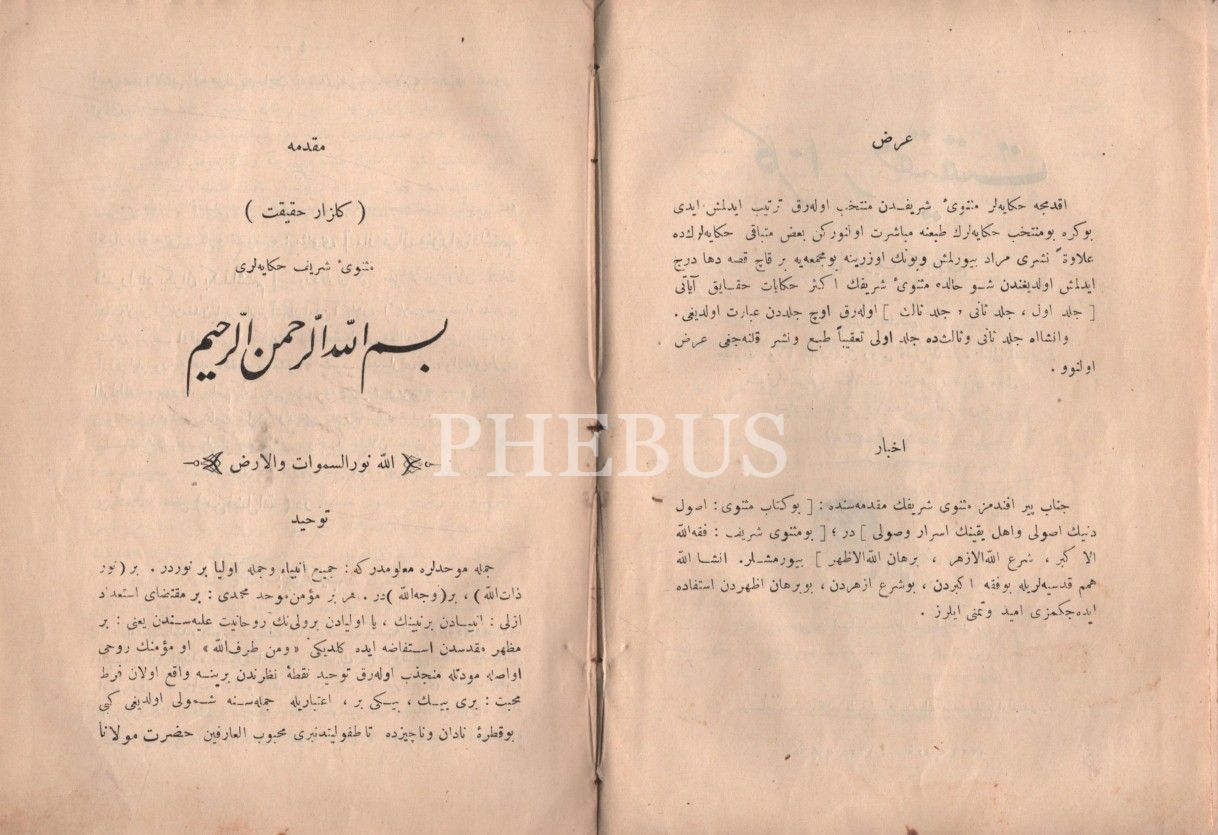 عرض
اقدمجه حکایه‌لر مثنوئ شریفدن منتخب اوله‌رق ترتیب ایدلمش ایدی
بوکره بومنتخب حکایه‌لرك طبعنه مباشرت اولنورکن بعض متباقی حکایه‌لرك‌ده
علاوةً نشری مراد بیورلمش وبونك اوزرینه بومجمعه‌یه بر قاچ قصه دها درج
ایدلمش اولدیغندن شو حالده مثنوئ شریفك اکثر حکایات حقایق آیاتی
[ جلد اول ، جلد ثانی ، جلد ثالث ] اوله‌رق اوچ جلددن عبارت اولدیغی.
وانشااه جلد ثانی وثالث‌ده جلد اولی تعقیباً طبع ونشر قلنه‌جغی عرض
اولنوو .
اخبار
جناب پیر افندمز مثنوی شریفك مقدمه‌سنده : [ بوکتاب مثنوی : اصول
دنیك اصولی واهل یقینك اسرار وصولی ] در ؛ [ بومثنوی شریف : فقه‌الله
الا کبر ، شرع الله‌الازهر ، برهان الله‌الاظهر ] بیورمشلر. انشا الله
همم قدسیه‌لریله بوفقه اکبردن ، بوشرع ازهردن ، بوبرهان اظهردن استفاده
ایده‌جکمزی امید وتمنی ایلرز .
مقدمه
( کلزار حقیقت )
مثنوئ شریف حکایه‌لری
بسم الله الرّحمن الرّحیم
الله نورالسموات والارض
توحید
جمله موحدلره معلومدرکه : جمیع انبیاء وجمله اولیا بر نوردر . بر (نور
ذات‌الله ) ، بر ( وجه‌الله ) در . هر بر مؤمن‌موحد محمدی : بر مقتضای استعداد
ازلی : انبیادن برنبینك ، یا اولیادن برولی‌نك روحانیت علیه‌سندن یعنی : بر
مظهر مقدسدن استفاضه ایده کلدیکی «ومن طرف‌الله» او مؤمنك روحی
اواصله مودتله منجذب اوله‌رق توحید نقطۀ نظرندن برینه واقع اولان فرط
محبت : بری بیك ، بیکی بر ، اعتباریله جمله‌سنه شمولی اولدیغی کبی
بوقطرۀ نادان وناچیزده تا طفولیتدنبری محبوب العارفین حضرت مولانا
PHEBUS